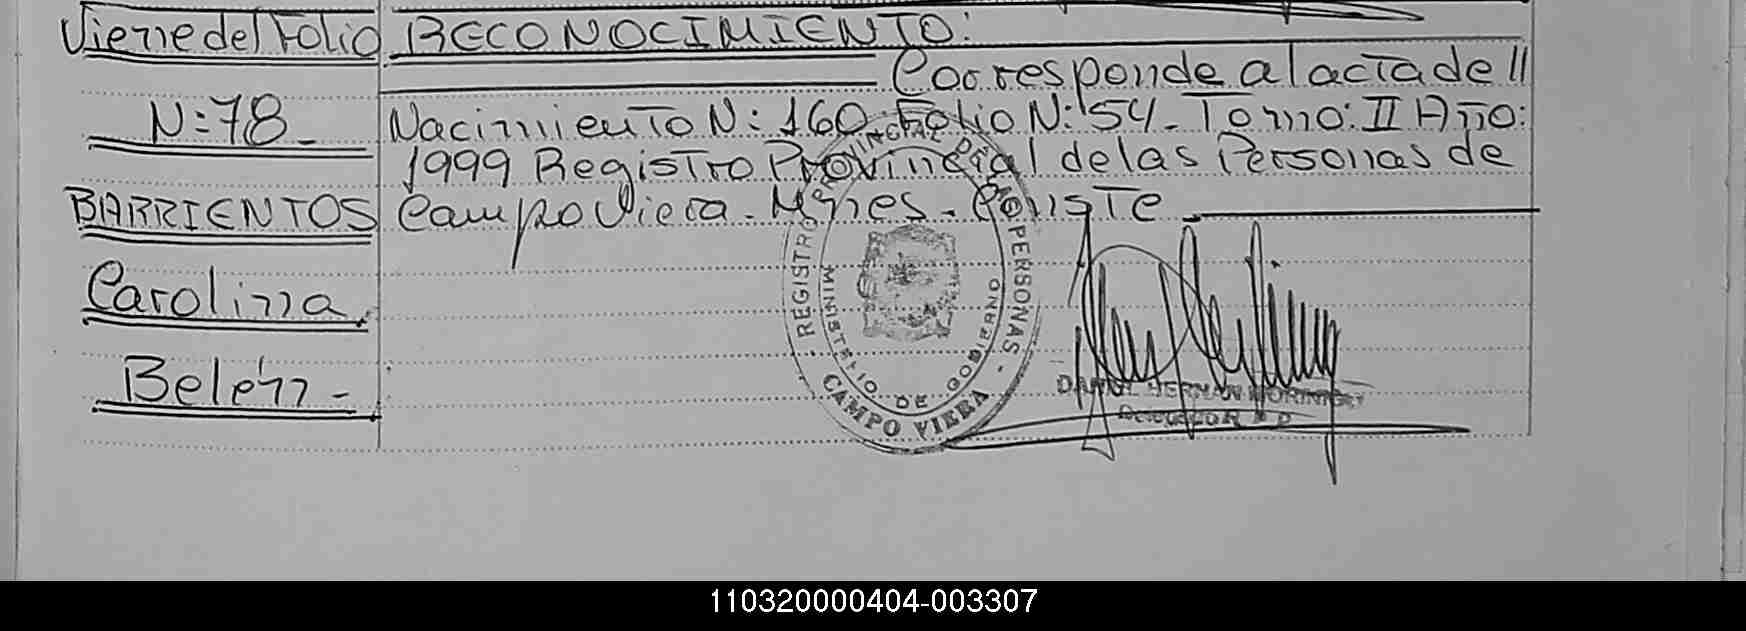 Viene del Folio
N:78_
BARRIENTOS
Carolina
Belén -
RECONOCIMIENTO:
Corresponde al acta de //
Nacimiento N: 160 Folio N: 54 - Tomo: II Año:
1999 Registro Provincial de las Personas de
Campo Viera - Mnes - Conste
REGISTRO PROVINCIAL DE LAS PERSONAS -
MINISTERIO DE GOBIERNO
CAMPO VIERA
HERNAN
110320000404-003307